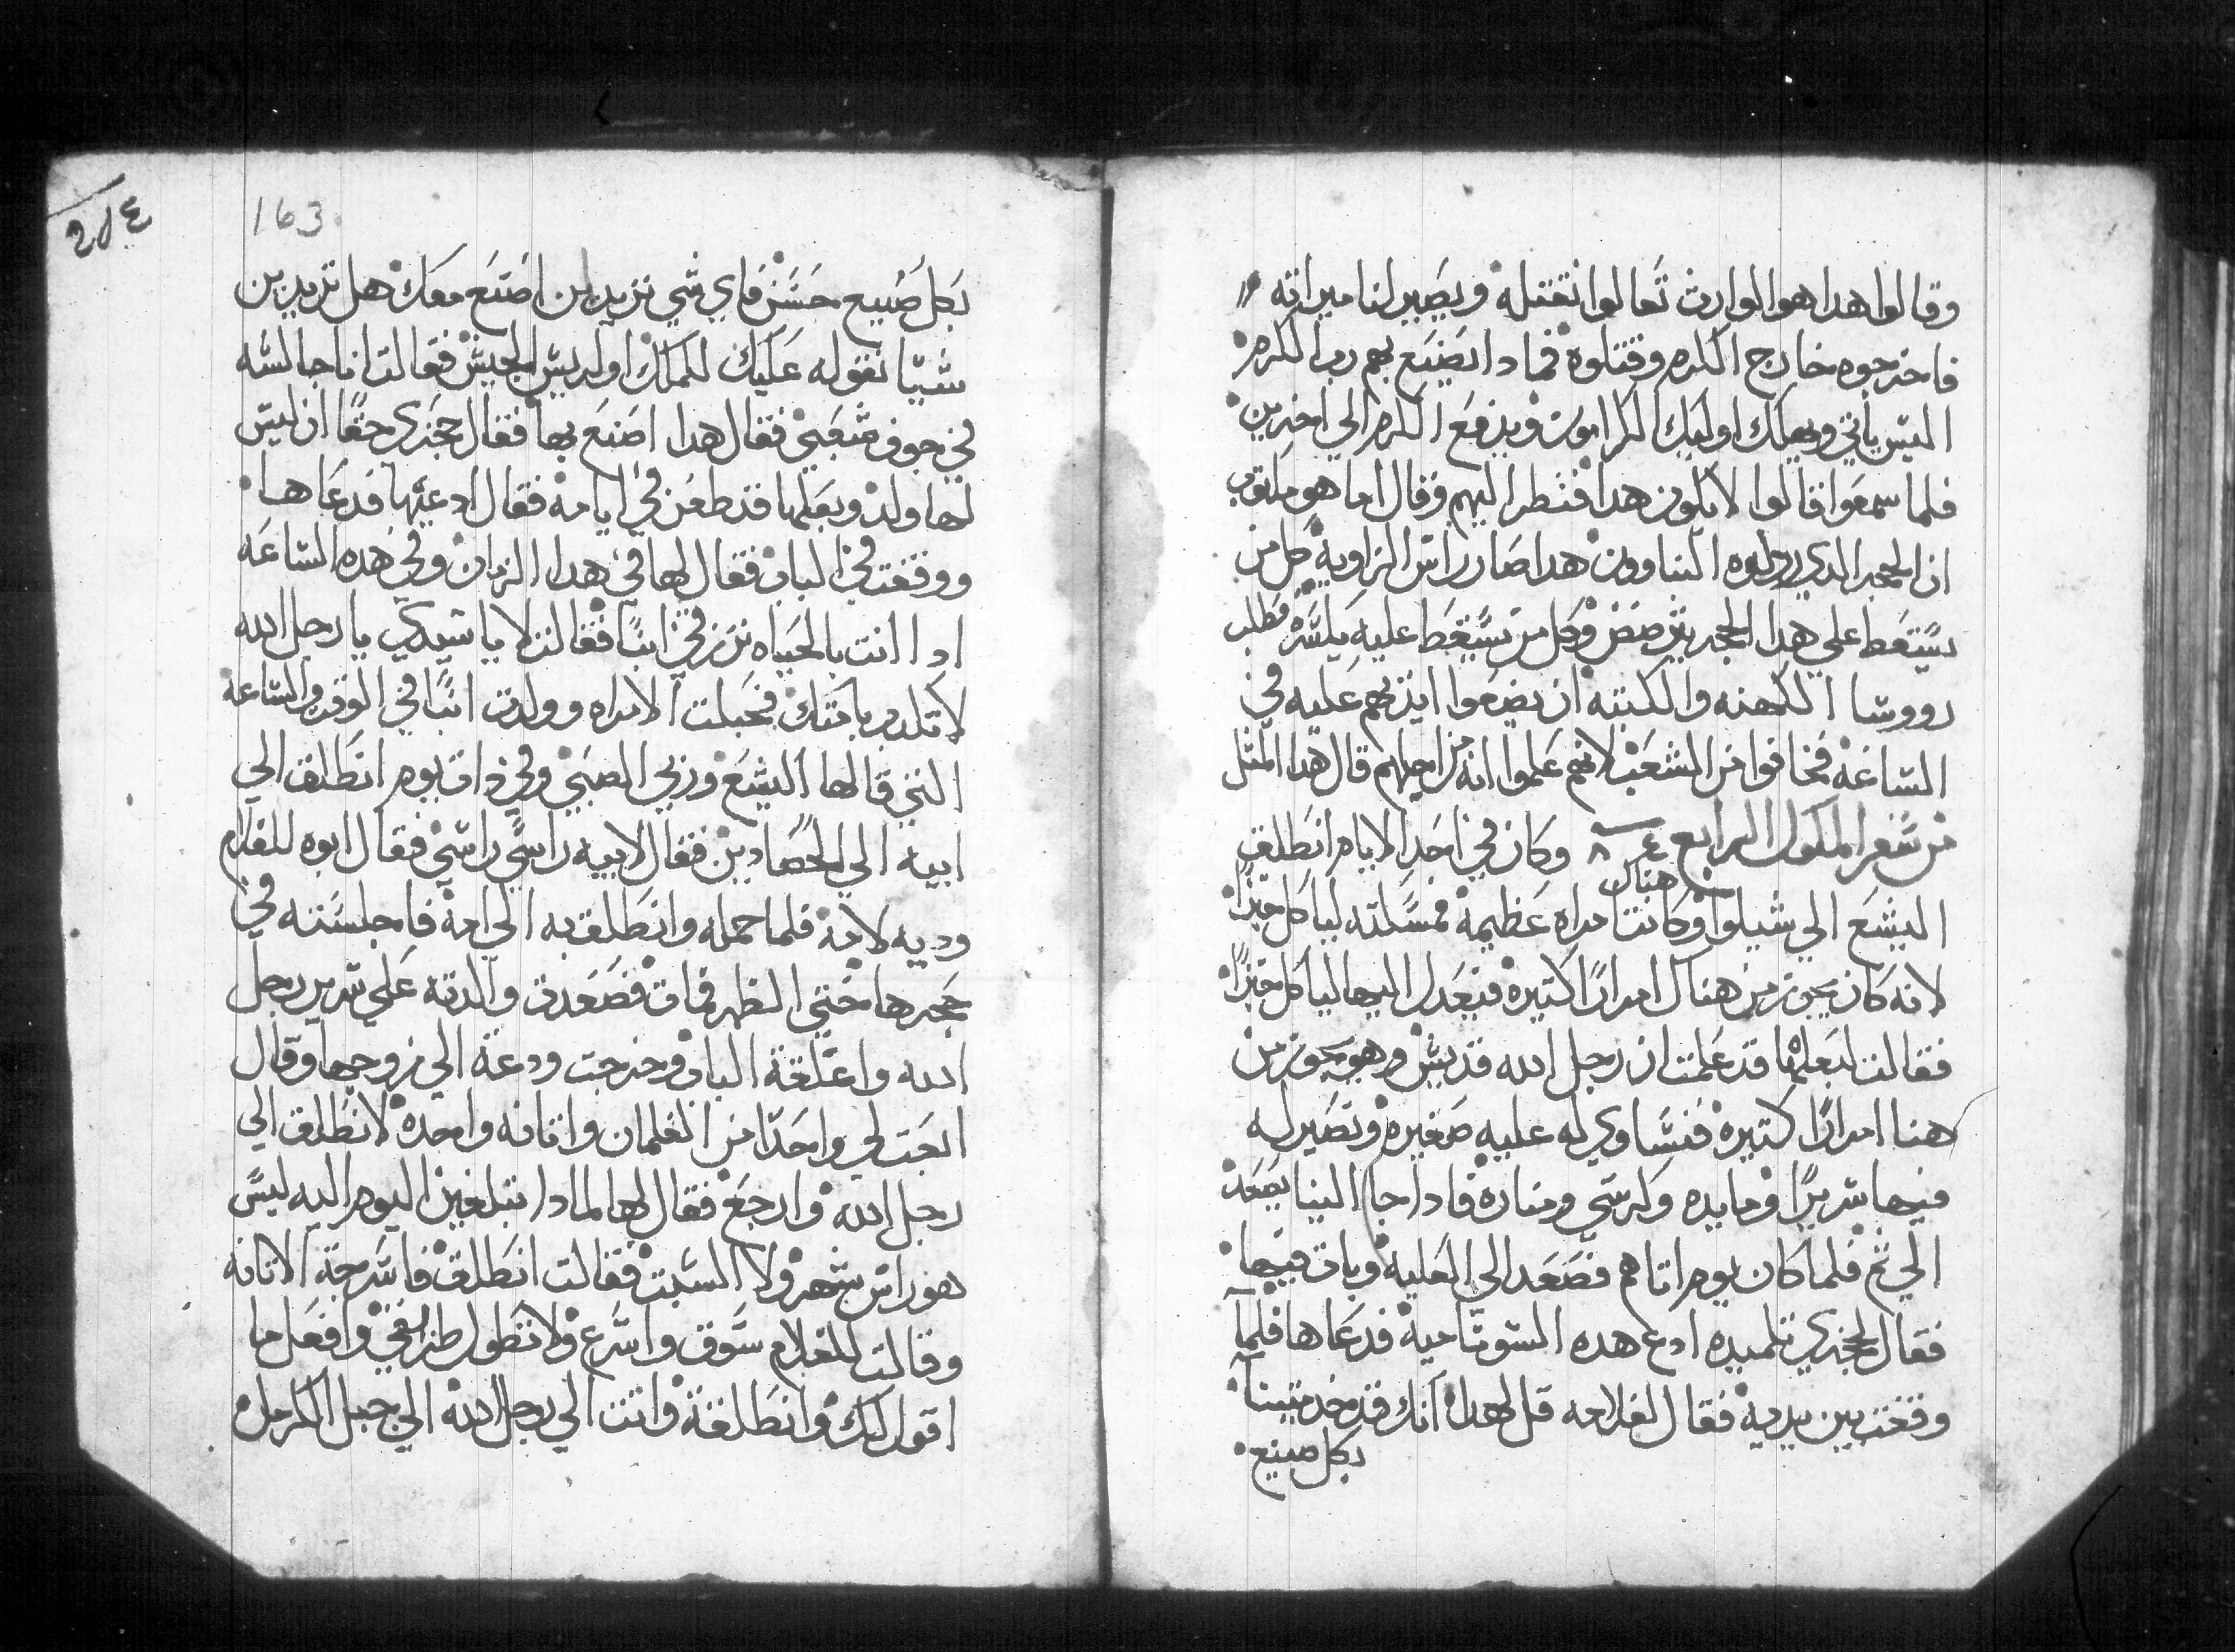 وقالوا هدا هو الوارث تعالوا نقتله ويصير لنا ميراته
فاخرجوه خارج الكرم وقتلوه فمادا يصنع بهم رب الكرم
اليس ياتي ويهلك اوليك الكرامون ويدفع الكرم الي اخرين
فلما سمعوا قالوا لا يكون هدا فنظر اليهم وقال اما هو مكتوب
ان الحجر الدي ردلوه البناوون هدا صار راس الزاويه كل من
يسقط علي هدا الحجر يترضض وكل من يسقط عليه يكسره فطلب
رووسا الكهنه والكتبه ان يضعوا ايديهم عليه في
الساعه فخافوا من الشعب لانهم علموا انه من اجلهم قال هدا المتل
من سفر الملوك الرابع وكان في احد الايام انطلق
اليشع الي شيلوا وكانت هناك امراه عظيمه فمسكته لياكل خبزا
لانه كان يجوز من هناك امرارا كتيره فيعدل اليها لياكل خبزا
فقالت لبعلها قد علمت ان رجل الله قديس وهو يجوز من
هنا امرارا كتيره فنساوي له عليه صغيره ونصير له
فيها سريرا ومايده وكرسي ومناره فادا جا الينا يصعد
الي تم فلما كان يوم اتاهم فصعد الي العليه وبات فيها
فقال لجحزي تلميده ادع هده السوناميه فدعاها فلما
وقفت بين يديه فقال لغلامه قل لهدا انك قد خدمتينا
بكل صنيع
2١٤
163
بكل صنيع حسن فاي شي تريد ان اصنع معك هل تريدين
شيا نقوله عليك للملك او لريس الجيش فقالت انا جالسه
في جوف شعبي فقال هدا اصنع بها فقال جحزي حقا ان ليس
لها ولد وبعلها قد طعن في ايامه فقال ادعيها فدعاها
ووقفت في الباب فقال لها في هدا الزمان وفي هده الساعه
ادا انت بالحياه ترزقي ابنا فقالت لا يا سيدي يا رجل الله
لا تكدب بامتك فحبلت الامراه وولدت ابنا في الوقت والساعه
التي قالها اليشع وربي الصبي وفي دات يوم انطلق الي
ابيه الي الحصادين فقال لابيه راسي راسي فقال ابوه للغلام
وديه لامه فلما حمله وانطلق به الي امه فاجلسته في
حجرها حتي الظهر فمات فصعدت والدته علي سرير رجل
الله واغلقة الباب وخرجت ودعة الي زوجها وقال
ابعت لي واحدا من الغلمان واتانه واحده لانطلق الي
رجل الله وارجع فقال لها لمادا تبلغين اليوم اليه ليس
هو راس شهر ولا السبت فقالت انطلق فاسرجة الاتانه
وقالت للغلام سوق واسرع ولا تطول طريقي وافعل ما
اقول لك وانطلقة واتت الي رجل الله الي جبل الكرمل